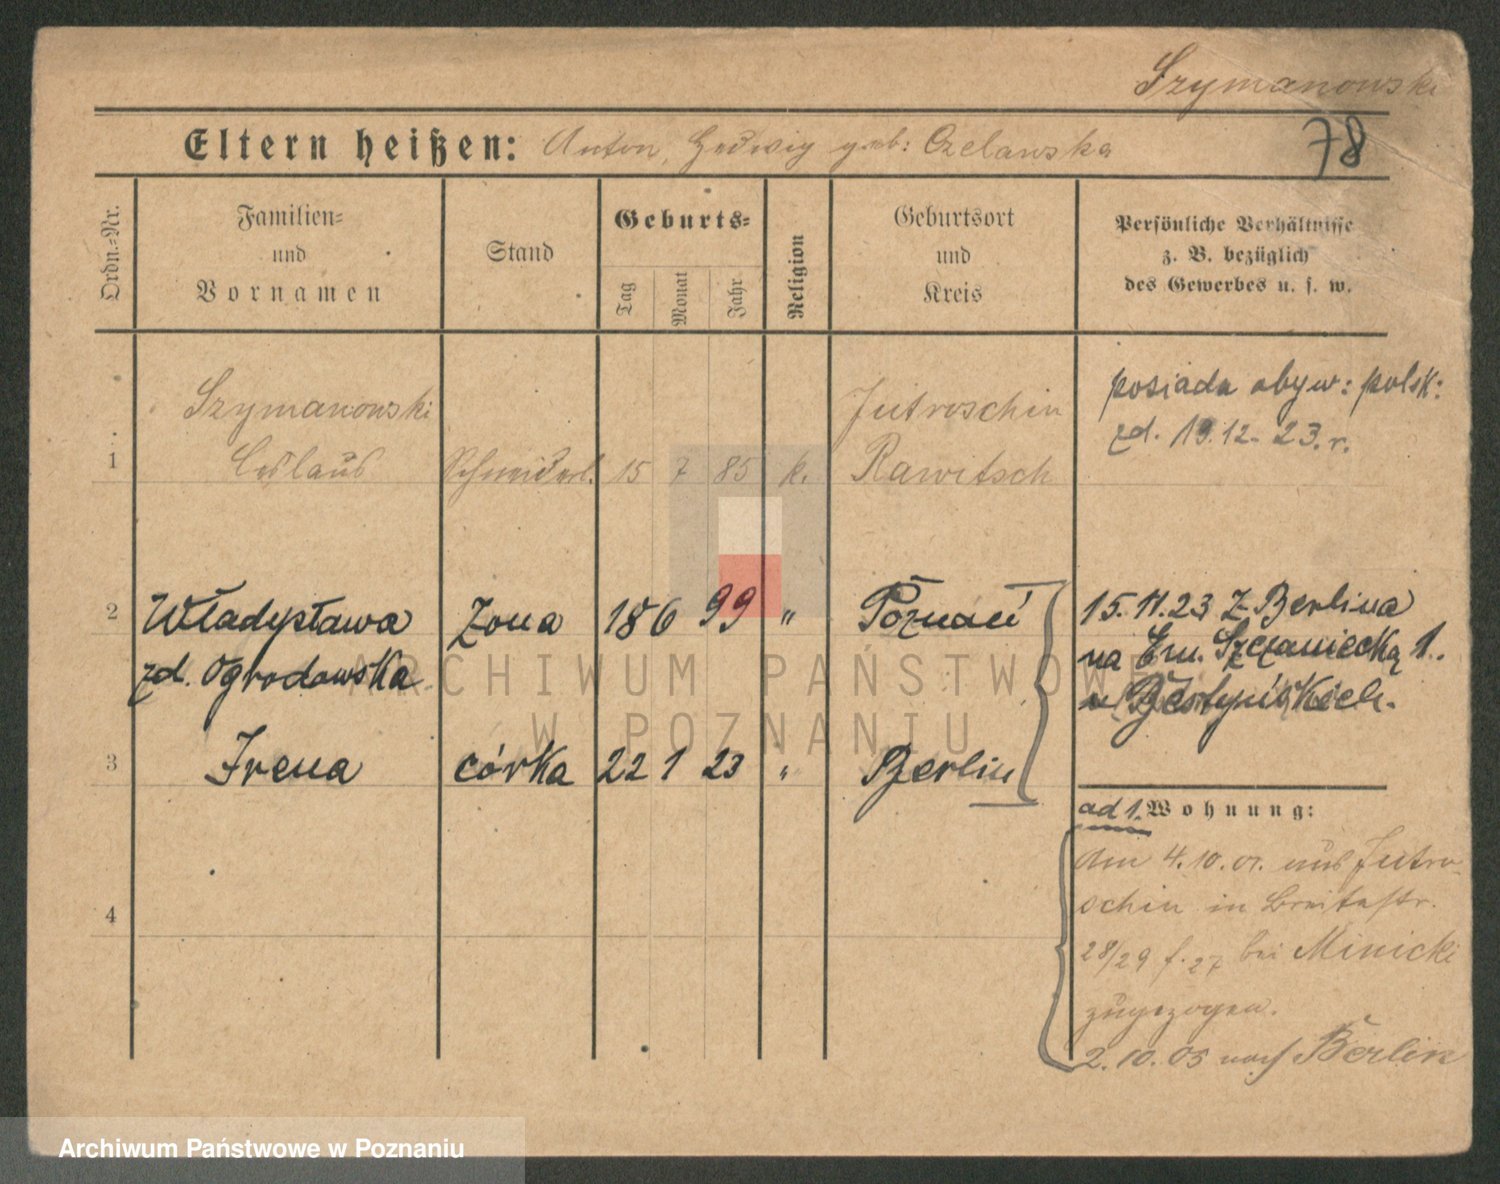 Szymanowski
78
Eltern heißen: Anton, Hedwig geb: Czelawska
Ordn.-Nr.
Familien-
und
Vornamen
Stand
Geburts-
Tag
Monat
Jahr
Religion
Geburtsort
und
Kreis
Persönliche Verhältnisse
z. B. bezüglich
des Gewerbes u. s. w.
Szymanowski Jutroschin posiada obyw: polsk:
1 Ceslaus Schneiderl. 15 7 85 k. Rawitsch zd. 19.12. 23. r.
2 Władysława Żona 18 6 99 " Poznań 15.11.23 Z Berlina
zd. Ogrodowska na Em. Szczaniecką 1.
u
3 Irena córka 22 1 23 " Berlin
ad 1. Wohnung:
am 4.10.01. aus Jutro-
schin in Breitestr.
4
28/29 f. 27 bei Minicki
zugezogen.
2.10.05 nach Berlin
ARCHIWUM PAŃSTWOWE
W POZNANIU
Archiwum Państwowe w Poznaniu